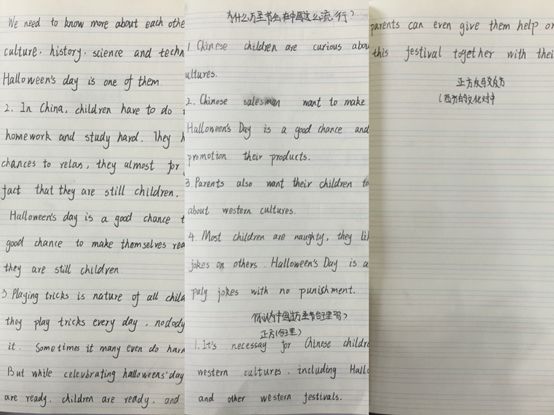 We need to know more about each othe
culture, history, science and techn
Halloween's day is one of them
2. In China, children have to do
homework and study hard. They h
chances to relax, they almost for
fact that they are still children.
Halloween's day is a good chance t
good chance to make themselves rea
they are still children
3. Playing tricks is nature of all child
they play tricks every day, nobody
it. Sometimes it many even do harm
But while celebrating halloween's day
are ready, children are ready, and
为什么万圣节会在中国这么流行?
1. Chinese children are curious abou
ultures.
2. Chinese salesman want to make
Halloween's Day is a good chance and
promotion their products.
3. Parents also want their children to
about western cultures.
4. Most children are naughty, they lik
jokes on others. Halloween's Day is a
paly jokes with no punishment.
你认为中国过万圣节合理吗?
正方(合理)
1. It's necessary for Chinese childre
western cultures, including Hallo
and other western festivals.
parents can even give them help or
this festival together with thei
正方
(西方的文化对中